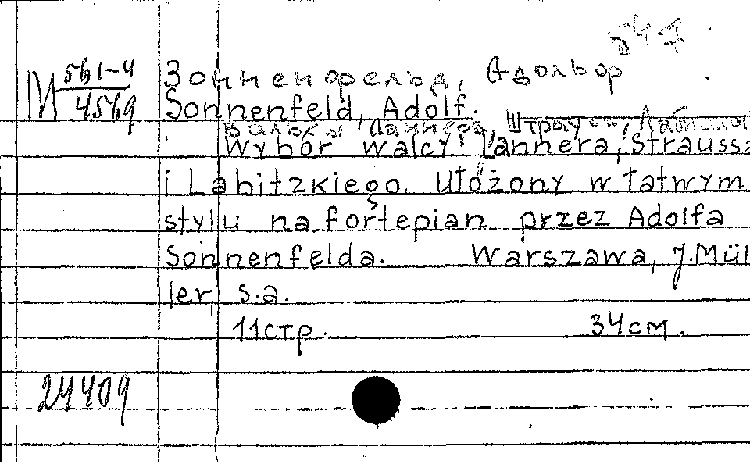 547
М 561-4
4569
Зонненфельд, Адольф
Sonnenfeld, Adolf.
Вальсы Ланнера, Штрауса, Лабицкого
Wybór walcy Lannera, Straussa
i Labitzkiego. Ułożony w łatwym
stylu na fortepian przez Adolfa
Sonnenfelda. Warszawa, J. Mül
ler s.a.
11стр. 34см.
24409